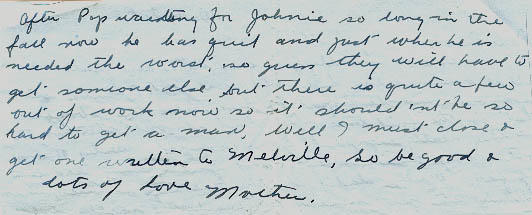 after Pop waiting for Johnie so long in the
fall now he has quit and just when he is
needed the worst, so guess they will have to
get someone else, but there is quite a few
out of work now so it should'nt be so
hard to get a man. Well I must close &
get one written to Melville, so be good &
lots of love Mother.